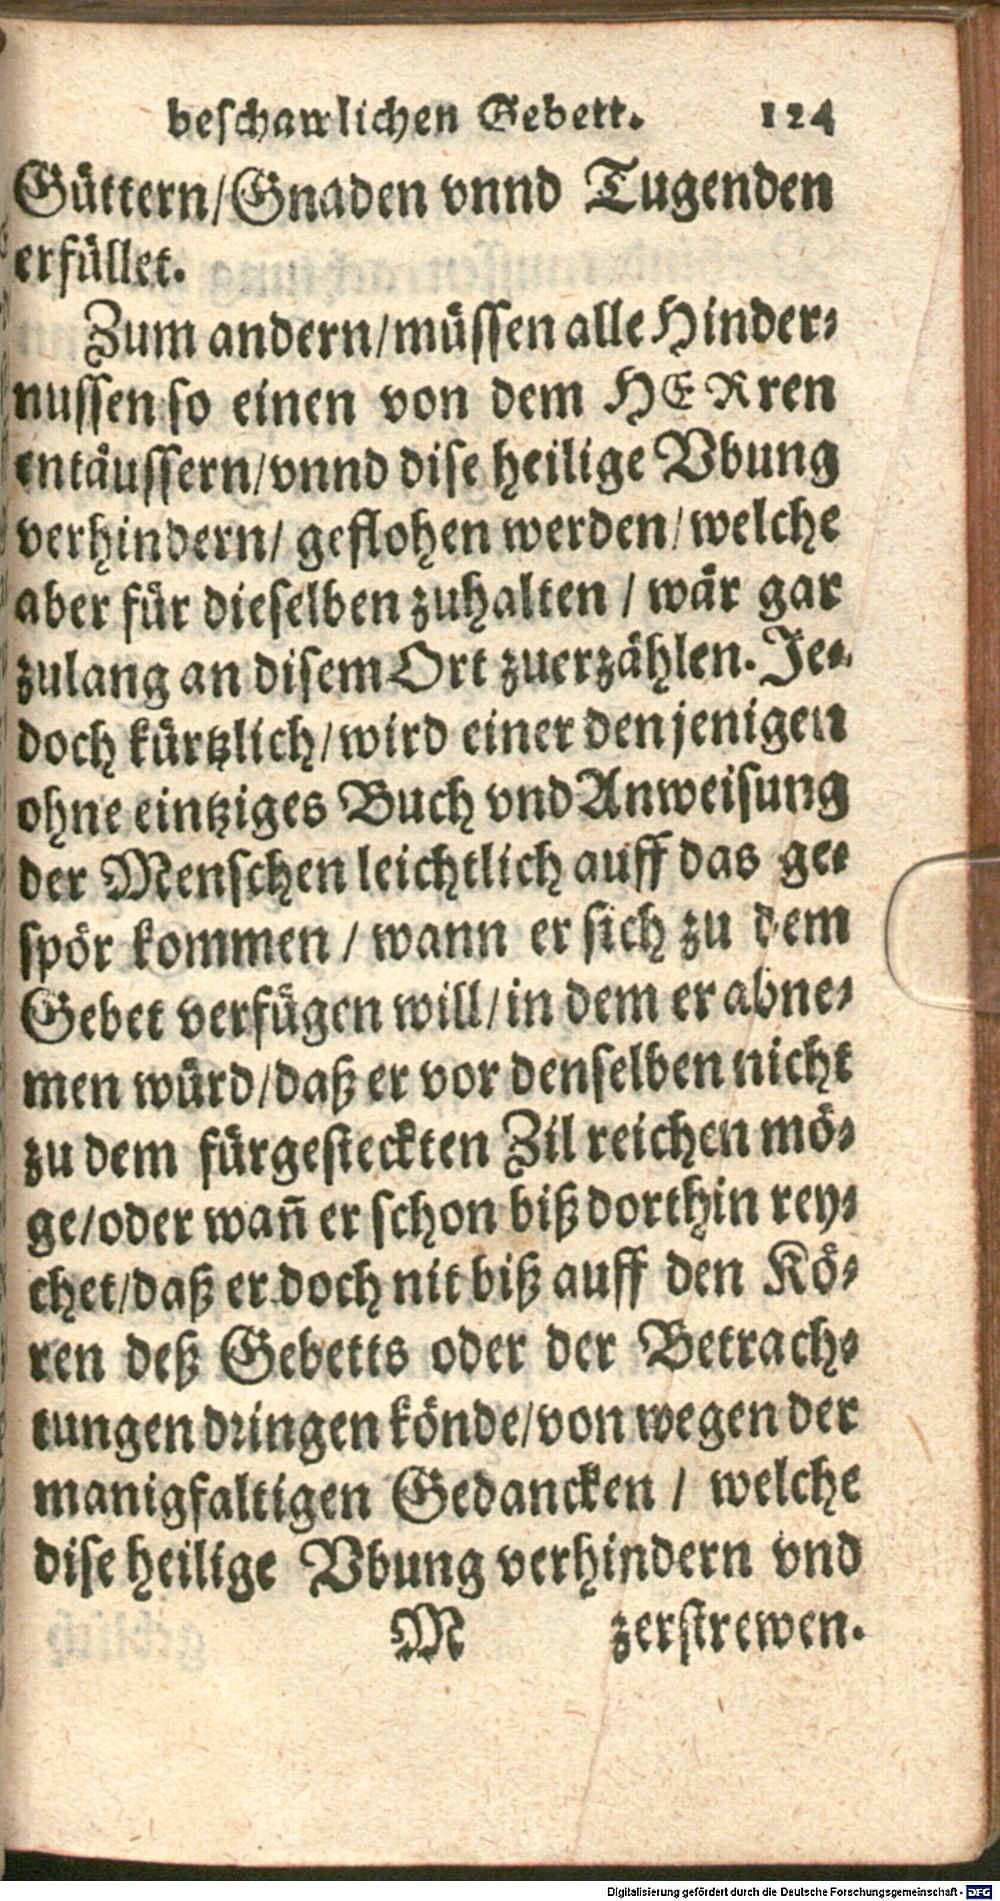 beschawlichen Gebett. 124
Güttern/Gnaden vnnd Tugenden
erfüllet.
Zum andern/müssen alle Hinder⸗
nussen so einen von dem HERren
entäussern/vnnd dise heilige Vbung
verhindern/ geflohen werden/welche
aber für dieselben zuhalten / wär gar
zulang an disem Ort zuerzählen. Je⸗
doch kürtzlich/wird einer den jenigen
ohne eintziges Buch vnd Anweisung
der Menschen leichtlich auff das ge⸗
spör kommen / wann er sich zu dem
Gebet verfügen will/in dem er abne⸗
men würd/daß er vor denselben nicht
zu dem fürgesteckten Zil reichen mö⸗
ge/oder wañ er schon biß dorthin rey⸗
chet/daß er doch nit biß auff den Kö⸗
ren deß Gebetts oder der Betrach⸗
tungen dringen könde/von wegen der
manigfaltigen Gedancken / welche
dise heilige Vbung verhindern vnd
M zerstrewen.
Digitalisierung gefördert durch die Deutsche Forschungsgemeinschaft - DFG